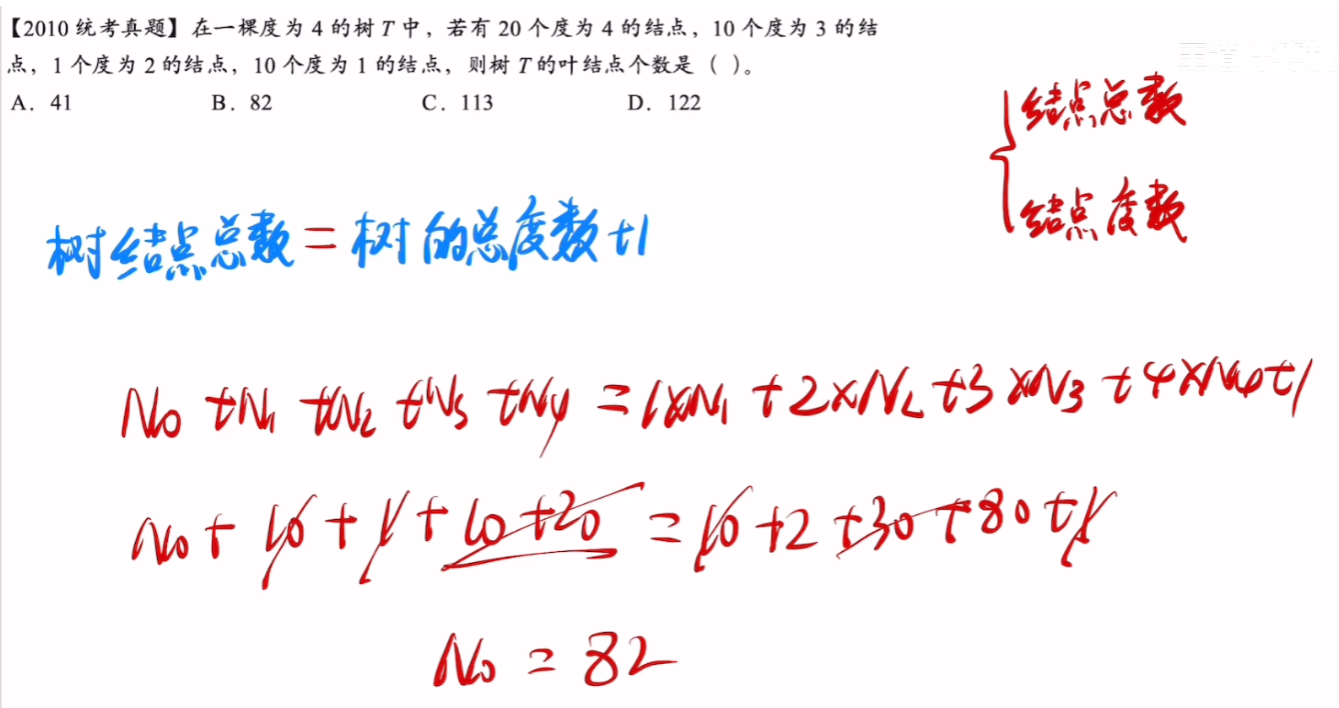 【2010 统考真题】在一棵度为 4 的树 T 中，若有 20 个度为 4 的结点，10 个度为 3 的结
点，1 个度为 2 的结点，10 个度为 1 的结点，则树 T 的叶结点个数是（ ）。
A．41 B．82 C．113 D．122
结点总数
结点度数
树结点总数=树的总度数+1
N0 +N1 +N2 +N3 +N4 =1×N1 +2×N2 +3×N3 +4×N4+1
N0+10+1+10+20=10+2+30+80+1
N0=82